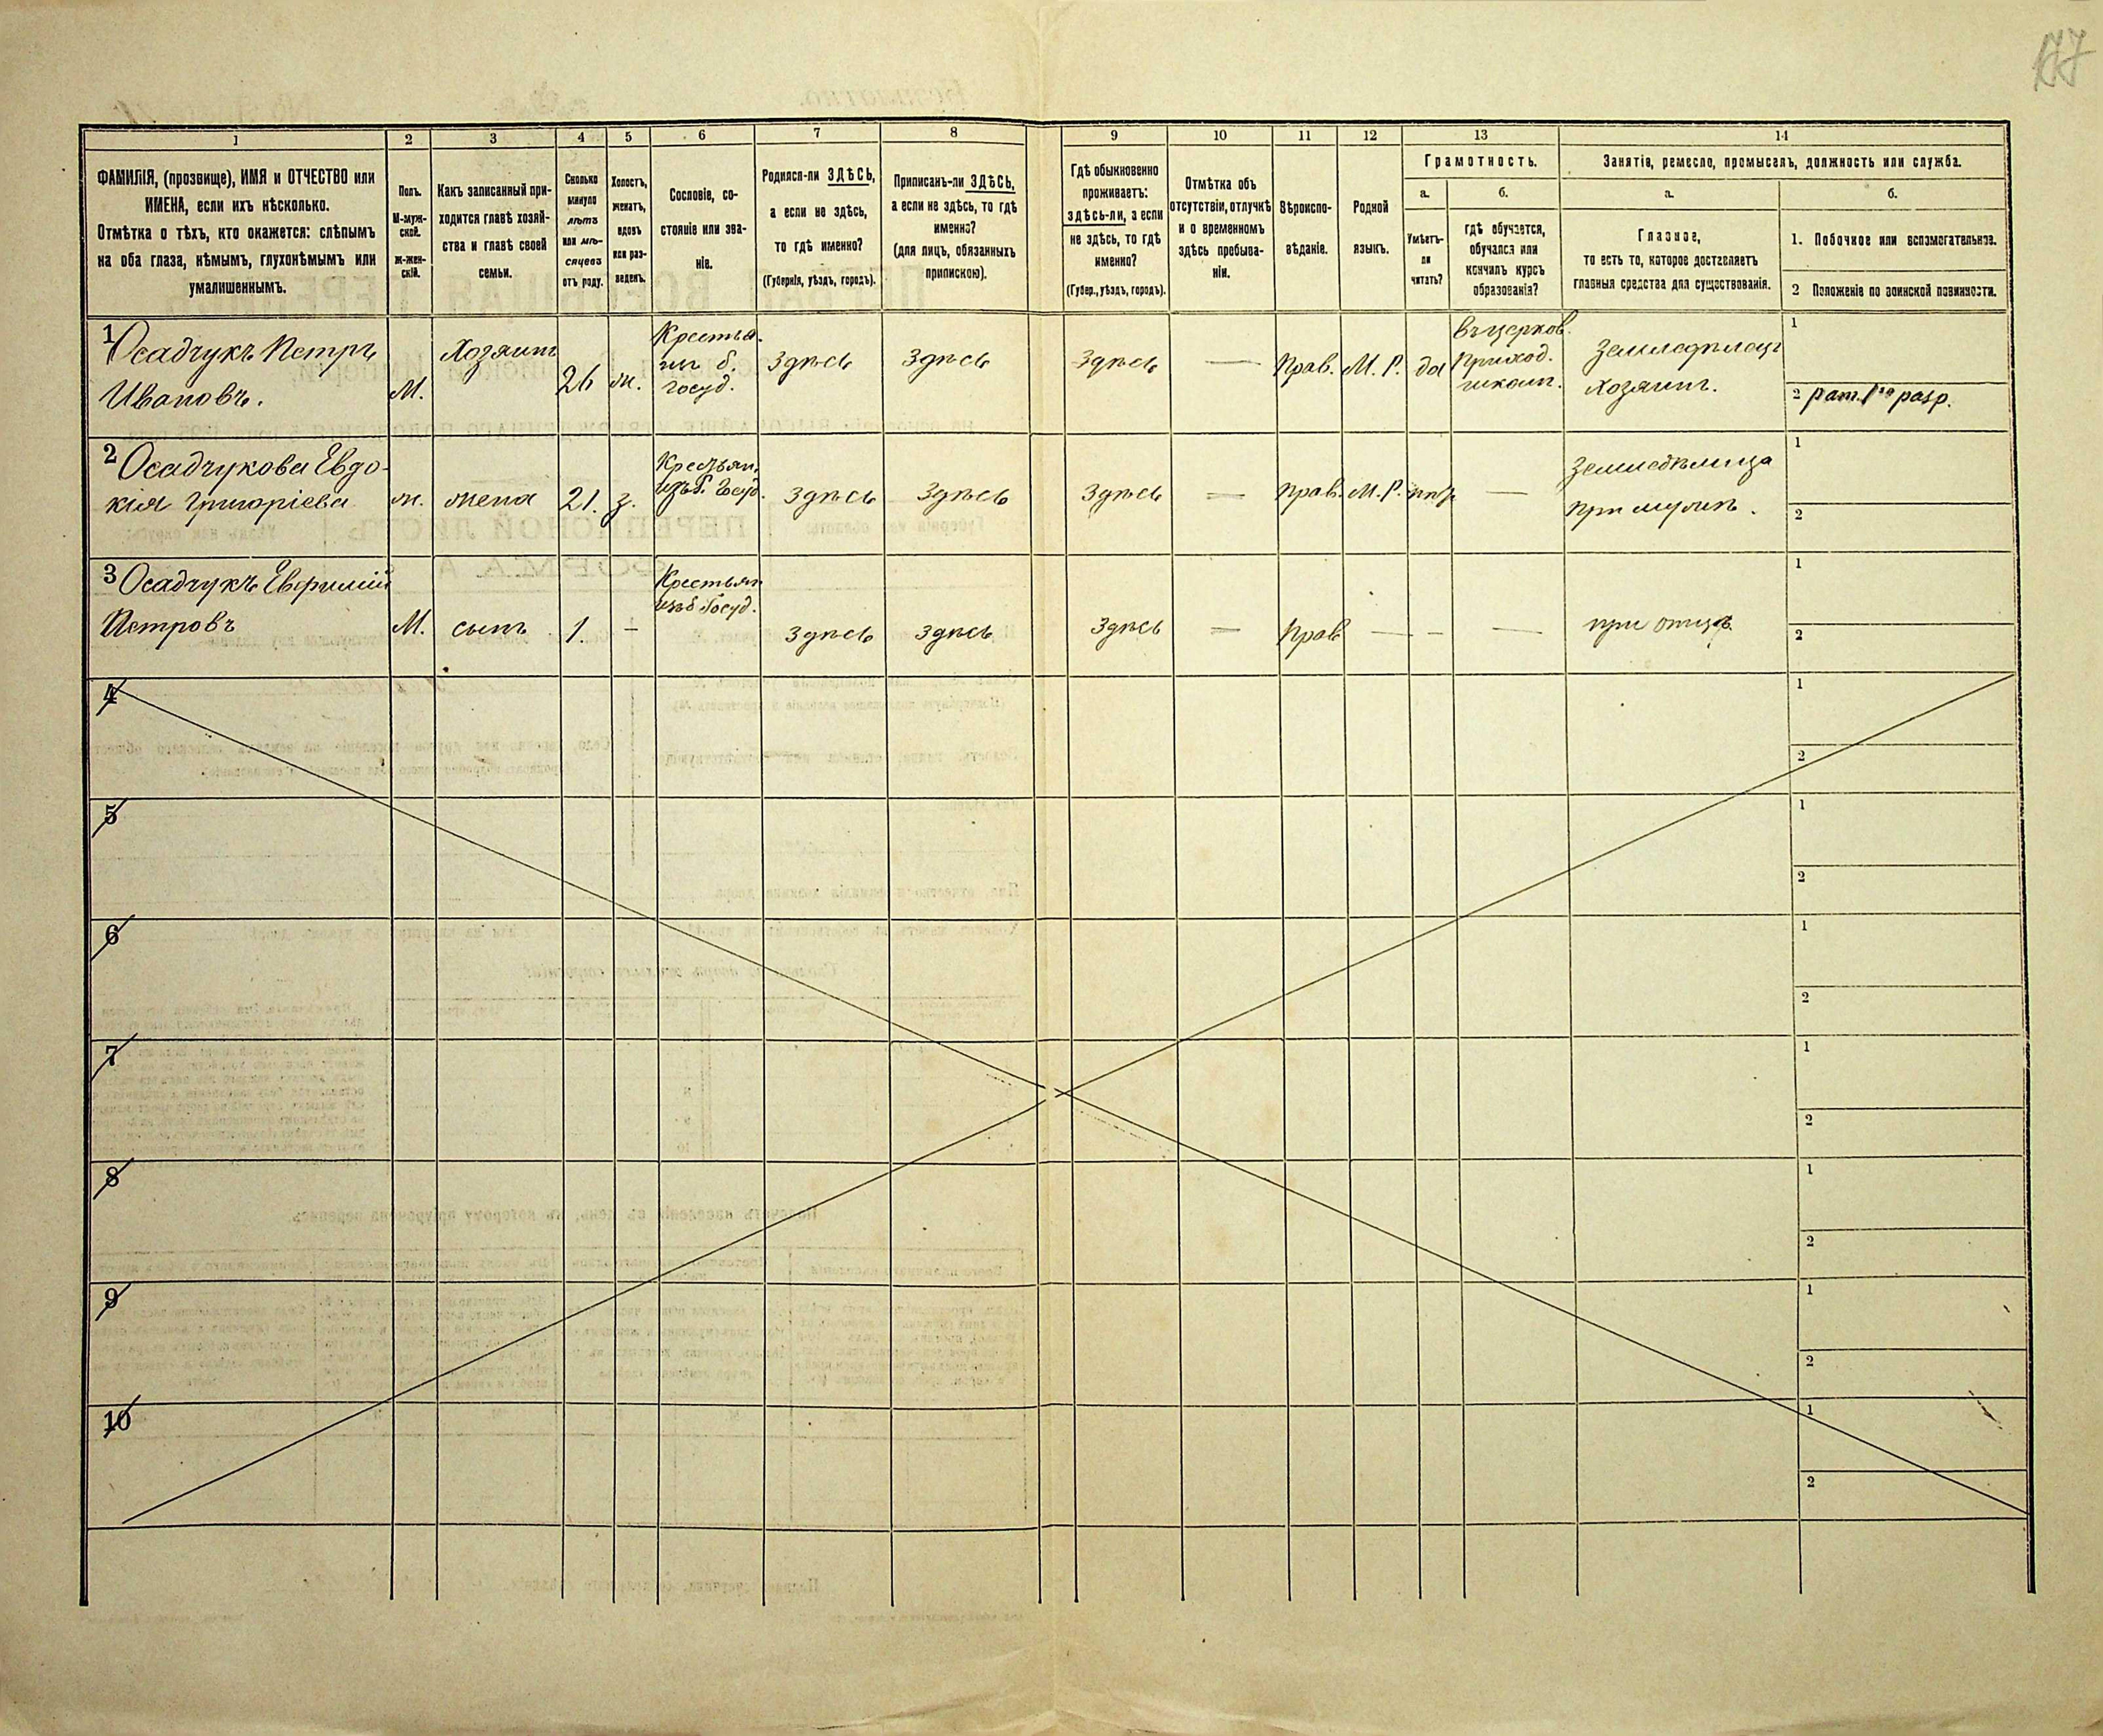 177
1 2 3 4 5 6 7 8 9 10 11 12 13 14
ФАМИЛІЯ, (прозвище), ИМЯ и ОТЧЕСТВО или
ИМЕНА, если ихъ нѣсколько.
Отмѣтка о тѣхъ, кто окажется: слѣпымъ
на оба глаза, нѣмымъ, глухонѣмымъ или
умалишеннымъ.
Полъ.
М-муж-
ской.
ж-жен-
скій.
Какъ записанный при-
ходится главѣ хозяй-
ства и главѣ своей
семьи.
Сколько
минуло
лѣтъ
или мѣ-
сяцевъ
отъ роду.
Холостъ,
женатъ,
вдовъ
или раз-
веденъ.
Сословіе, со-
стояніе или зва-
ніе.
Родился-ли ЗДѢСЬ,
а если не здѣсь,
то гдѣ именно?
(Губернія, уѣздъ, городъ).
Приписанъ-ли ЗДѢСЬ,
а если не здѣсь, то гдѣ
именно?
(для лицъ, обязанныхъ
припискою).
Гдѣ обыкновенно
проживаетъ:
здѣсь-ли, а если
не здѣсь, то гдѣ
именно?
(Губер., уѣздъ, городъ).
Отмѣтка объ
отсутствіи, отлучкѣ
и о временномъ
здѣсь пребыва-
ніи.
Вѣроиспо-
вѣданіе.
Родной
языкъ.
Грамотность.
а.
Умѣетъ-
ли
читать?
б.
гдѣ обучается,
обучался или
кончилъ курсъ
образованія?
Занятіе, ремесло, промыселъ, должность или служба.
а.
Главное,
то есть то, которое доставляетъ
главныя средства для существованія.
б.
1. Побочное или вспомогательное.
2 Положеніе по воинской повинности.
1 Осадчукъ Петръ
Ивановъ.
М.
Хозяинъ
26
ж.
Крестья.
инъ б.
госуд.
Здѣсь
Здѣсь
Здѣсь
—
Прав.
М. Р.
да
въ церков.
приход.
школѣ.
Земледѣлецъ
хозяинъ.
1
2 рат. 1го разр.
2 Осадчукова Евдо-
кія Григоріева
ж.
жена
21.
з.
Крестьян.
изъ б. Госуд.
Здѣсь
Здѣсь
Здѣсь
—
Прав.
М. Р.
—
Земледѣлица
при мужѣ.
1
2
3 Осадчукъ Евфимій
Петровъ
М.
сынъ
1.
–
Крестьян
изъ б Госуд.
Здѣсь
Здѣсь
Здѣсь
—
Прав
—
–
—
при отцѣ.
1
2
4
1
2
5
1
2
6
1
2
7
1
2
8
1
2
9
1
2
10
1
2